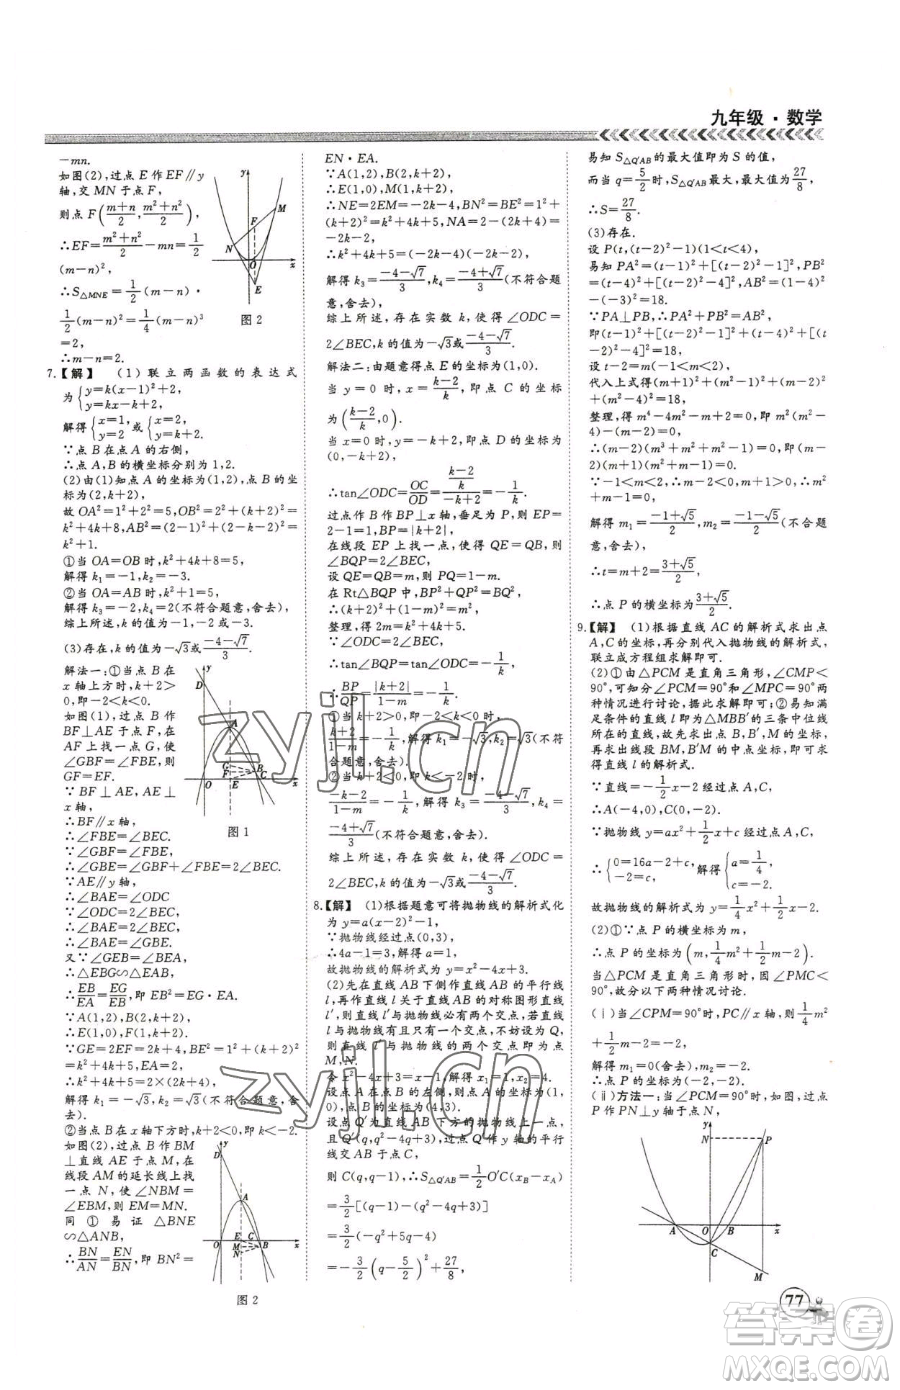 九年级·数学
-mn.
如图(2),过点 E 作 EF∥y
轴,交 MN 于点 F,
则点 F((m+n)/2, (m²+n²)/2)
∴EF=(m²+n²)/2-mn=1/2
(m-n)².
∴S△MNE=1/2(m-n)·
1/2(m-n)²=1/4(m-n)³
=2,
∴m-n=2.
图 2
7.【解】 (1)联立两函数的表达式
为{y=k(x-1)²+2, y=kx-k+2,
解得{x=1, y=2 或{x=2, y=k+2.
∵点 B 在点 A 的右侧,
∴点 A,B 的横坐标分别为 1,2.
(2)由(1)知点 A 的坐标为(1,2),点 B
的坐标为(2,k+2),
故 OA²=1²+2²=5,OB²=2²+(k+2)²=
k²+4k+8,
①当 OA=OB 时,k²+4k+8=5,
解得 k₁=-1,k₂=-3.
②当 OA=AB 时,1+k²=5,
解得 k₃=-2,k₄=2(不符合题意,舍去).
综上所述,k 的值为-1或-2或-3.
(3)存在,k 的值为-√3或(-4-√7)/3.
解法一:①当点 B 在
x 轴上方时,k+2>0,
∴-2<k<0.
如图(1),过点 B 作
BF⊥AE 于点 F,在
AF 上找一点 G,使
∠GBF=∠FBE,则
GF=EF.
∵BF⊥AE,AE⊥x
轴,
∴BF∥x轴,
∴∠FBE=∠BEC.
∵∠GBF=∠FBE,
∴∠GBE=∠GBF+∠FBE=2∠BEC.
∵AE∥y轴,
∴∠BAE=∠ODC
∵∠ODC=2∠BEC,
∴∠GBE=∠BAE.
又∵∠GEB=∠BEA,
∴△EBG∽△EAB,
∴EB/EA=EG/EB,即 EB²=EG·EA.
∵A(1,2),B(2,k+2),
∴E(1,0),
∵GE=2EF=2k+4,BE²=1+(k+2)²=
k²+4k+5,
∴k²+4k+5=2×(2k+4),
解得 k₁=-√3,k₂=√3(不符合题意,舍
去).
②当点 B 在 x 轴下方时,k+2<0,∴k<-2.
图 1
如图(2),过点 B 作 BM
⊥直线 AE 于点 M,在
线段 AM 的延长线上找
一点 N,使∠NBM=
∠EBM,则 EM=MN.
同 ① 易 证 △BNE
∽△ANB,
∴BN/AN=EN/BN,即 BN²=
图 2
EN·EA.
∵A(1,2),B(2,k+2),
∴E(1,0),M(1,k+2),
∴NE=2EM=-2k-4,BN²=BE²=1+
(k+2)²=k²+4k+5,NA=2-(2k+4)=
-2k-2,
∴k²+4k+5=(-2k-4)(-2k-2),
解得 k₃=(-4-√7)/3,k₄=(-4+√7)/3(不符合
题意,舍去).
综上所述,存在实数 k,使得∠ODC=
2∠BEC,k 的值为-√3或(-4-√7)/3.
解法二:由题意得点 E 的坐标为(1,0).
当 y=0 时,x=(k-2)/k,即点 C 的坐标
为((k-2)/k,0).
当 x=0 时,y=-k+2,即点 D 的坐标为
(0,-k+2),
∴tan∠ODC=OC/OD=((k-2)/k)/(-k+2)=-1/k.
过点作 B作 BP⊥x 轴,垂足为点 P,则 EP=
2-1=1,BP=|k+2|,
在线段 EP 上找一点 Q,使得∠QBE=
∠BEC,则∠BQP=2∠BEC,
设 QE=QB=m,
在 Rt△BQP 中,BP²+PQ²=BQ²,
即(k+2)²+(1-m)²=m²,
整理,得 m=(k²+4k+5)/2.
∵∠ODC=2∠BEC,
∴tan∠BQP=tan∠ODC=-1/k,
∴BP/PQ=|k+2|/(1-m)=-1/k.
①当 k+2>0,即-2<k<0 时,
(k+2)/(1-m)=-1/k,解得 k₁=-√3,k₂=√3(不符
合题意,舍去).
②当 k+2<0,即 k<-2 时,
(-k-2)/(1-m)=-1/k,解得 k₃=(-4-√7)/3,k₄=
(-4+√7)/3(不符合题意,舍去).
综上所述,存在实数 k,使得∠ODC=
2∠BEC,k 的值为-√3或(-4-√7)/3.
8.【解】 (1)根据题意可将抛物线的解析式化
为 y=a(x-2)²-1,
∵抛物线经过点(0,3),
∴4a-1=3,解得 a=1.
故抛物线的解析式为 y=x²-4x+3.
(2)先在直线 AB 下侧作直线 AB 的平行线
l,再作直线 l 关于直线 AB 的对称图形直线
l′,则直线 l′与抛物线的两个交点即为所求
点 Q.当直线 l 与抛物线只有一个交点时,直线
l′与抛物线有两个交点,不妨设为 Q,
则直线 l′与抛物线的两个交点即为点
M,N.
令 x²-4x+3=0,解得 x₁=1,x₂=3.
设点 A 的坐标为(1,0),点 B 的坐标为
(1,0),点 B 的坐标为(4,3).
设点 Q′为直线 AB 下方的抛物线上一点,
且点 Q′(q,q²-4q+3),过点 Q′作 y轴的平行线
交 AB 于点 C,
则 C(q,q-1),∴S△Q′AB=1/2Q′C(xB-xA)
=3/2[(q-1)-(q²-4q+3)]
=3/2(-q²+5q-4)
=-3/2(q-5/2)²+27/8,
易知 S△Q′AB的最大值即为 S 的值,
而当 q=5/2时,S△Q′AB最大,最大值为27/8,
∴S=27/8.
(3)存在.
设 P(t,(t-2)²-1)(1<t<4),
易知 PA²=(t-1)²+[(t-2)²-1]²,PB²
=(t-4)²+[(t-2)²-4]²,AB²=(1-4)²
+(-3)²=18.
∵PA⊥PB,∴PA²+PB²=AB²,
即(t-1)²+[(t-2)²-1]²+(t-4)²+
[(t-2)²-4]²=18.
设 t-2=m(-1<m<2),
代入上式得(m+1)²+(m²-1)²+(m-
2)²+(m²-4)²=18,
整理,得 m⁴-4m²-m+2=0,
∴(m-2)(m³+m²+m²-1)=0,
∴(m-2)(m+1)(m²+m-1)=0.
∵-1<m<2,∴m²+m-1=0,
解得 m₁=(-1+√5)/2,m₂=(-1-√5)/2(不符合题
意,舍去).
∴t=m+2=(3+√5)/2,
∴点 P 的横坐标为(3+√5)/2.
9.【解】 (1)根据直线 AC 的解析式求出点
A,C 的坐标,再分别代入抛物线的解析式,
联立成方程组求解即可.
(2)①由△PCM 是直角三角形,∠CMP<
90°,可知∠PCM=90°和∠MPC=90°两
种情况进行讨论,据此求解即可;②易知满
足条件的直线 l 即为△MBB′的三条中位线
所在的直线,故先求出点 B,B′,M 的坐标,
再求出 MB,B′M 的中点坐标,即可
得到直线 l 的解析式.
∵直线 y=-1/2x-2 经过点 A,C,
∴A(-4,0),C(0,-2).
∵抛物线 y=ax²+1/2x+c 经过点 A,C,
∴{0=16a-2+c, c=-2, 解得{a=1/4, c=-2.
故抛物线的解析式为 y=1/4x²+1/2x-2.
(2)①∵点 P 的横坐标为 m,
∴点 P 的坐标为(m,1/4m²+1/2m-2).
当△PCM 是直角三角形时,因为∠PMC<
90°,故分以下两种情况讨论.
(ⅰ)当∠CPM=90°时,PC∥x轴,则1/4m²
+1/2m-2=-2,
解得 m₁=0(舍去),m₂=-2.
∴点 P 的坐标为(-2,-2).
(ⅱ)方法一:当∠PCM=90°时,如图,过点
P 作 PN⊥y 轴于点 N,
77
zyjl.cn
答案圈
MXQE.COM